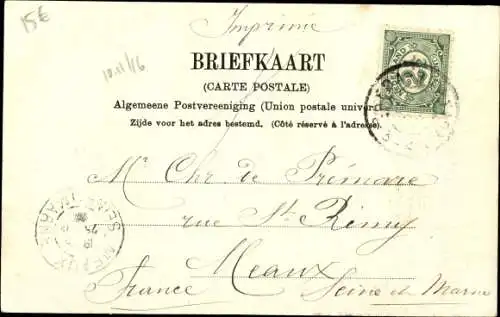 15€
Imprimé
10.11/16
BRIEFKAART
(CARTE POSTALE)
Algemeene Postvereeniging (Union postale univer
Zijde voor het adres bestemd. (Côté réservé à l'adresse).
Mr Chr. de Prémare
rue St Rémy
Meaux
France Seine et Marne
MEAUX
SEINE-ET-MARNE